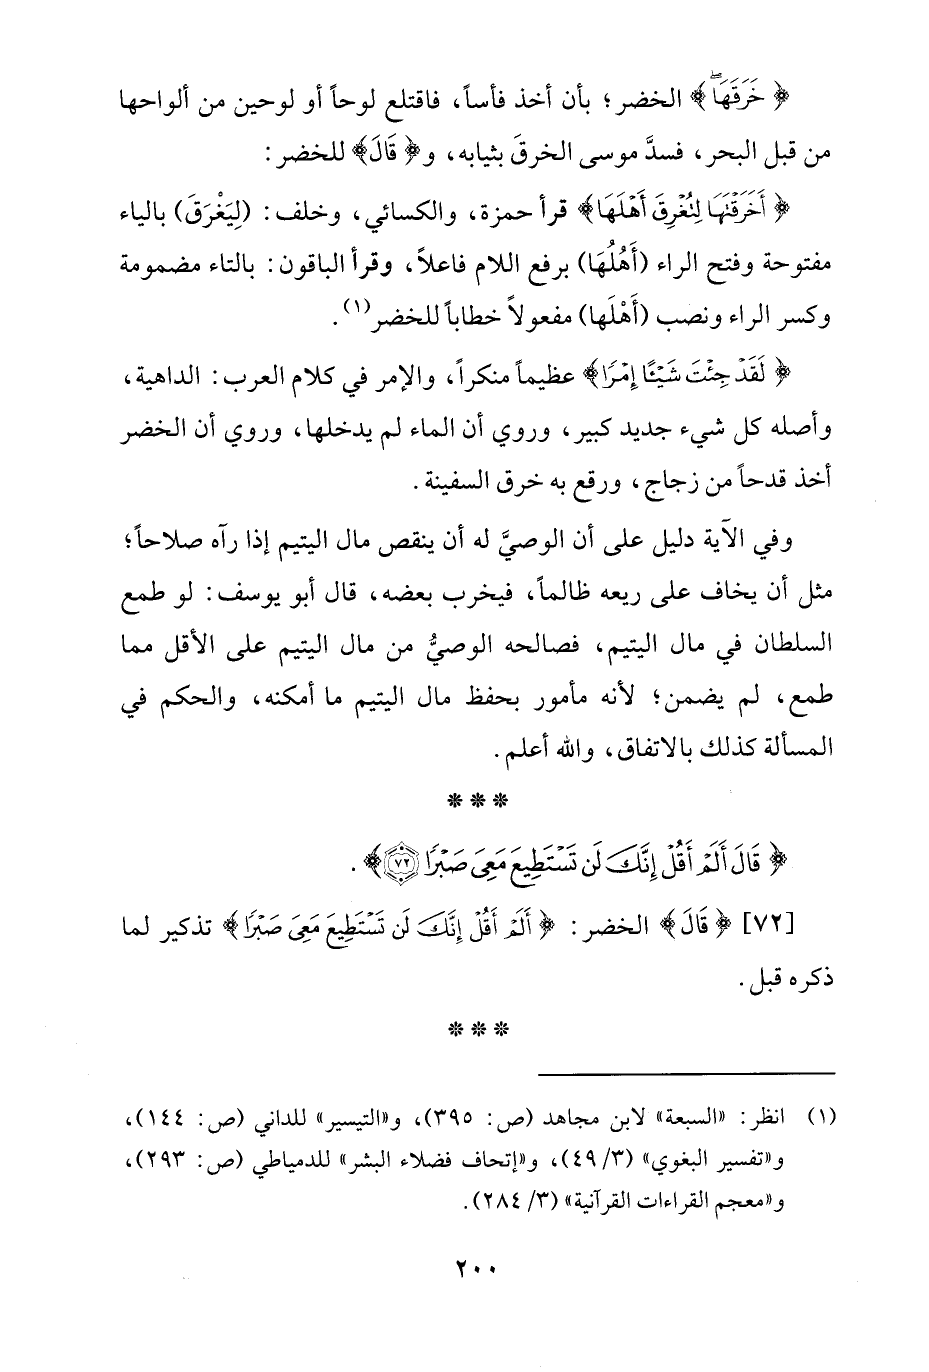 ﴿ خَرَقَهَا ۖ﴾ الخضر؛ بأن أخذ فأساً، فاقتلع لوحاً أو لوحين من ألواحها
من قبل البحر، فسدَّ موسى الخرقَ بثيابه، و﴿ قَالَ﴾ للخضر:
﴿ أَخَرَقْتَهَا لِتُغْرِقَ أَهْلَهَا﴾ قرأ حمزة، والكسائي، وخلف: (لِيَغْرَقَ) بالياء
مفتوحة وفتح الراء (أَهْلُهَا) برفع اللام فاعلاً، وقرأ الباقون: بالتاء مضمومة
وكسر الراء ونصب (أَهْلَها) مفعولاً خطاباً للخضر(١).
﴿ لَقَدْ جِئْتَ شَيْئًا إِمْرًا﴾ عظيماً منكراً، والإمر في كلام العرب: الداهية،
وأصله كل شيء جديد كبير، وروي أن الماء لم يدخلها، وروي أن الخضر
أخذ قدحاً من زجاج، ورقع به خرق السفينة.
وفي الآية دليل على أن الوصيَّ له أن ينقص مال اليتيم إذا رآه صلاحاً؛
مثل أن يخاف على ريعه ظالماً، فيخرب بعضه، قال أبو يوسف: لو طمع
السلطان في مال اليتيم، فصالحه الوصيُّ من مال اليتيم على الأقل مما
طمع، لم يضمن؛ لأنه مأمور بحفظ مال اليتيم ما أمكنه، والحكم في
المسألة كذلك بالاتفاق، والله أعلم.
* * *
﴿ قَالَ أَلَمْ أَقُلْ إِنَّكَ لَن تَسْتَطِيعَ مَعِىَ صَبْرًا ٧٢﴾.
[٧٢] ﴿ قَالَ﴾ الخضر: ﴿ أَلَمْ أَقُلْ إِنَّكَ لَن تَسْتَطِيعَ مَعِىَ صَبْرًا﴾ تذكير لما
ذكره قبل.
* * *
(١) انظر: «السبعة» لابن مجاهد (ص: ٣٩٥)، و«التيسير» للداني (ص: ١٤٤)،
و«تفسير البغوي» (٣/ ٤٩)، و«إتحاف فضلاء البشر» للدمياطي (ص: ٢٩٣)،
و«معجم القراءات القرآنية» (٣/ ٢٨٤).
٢٠٠